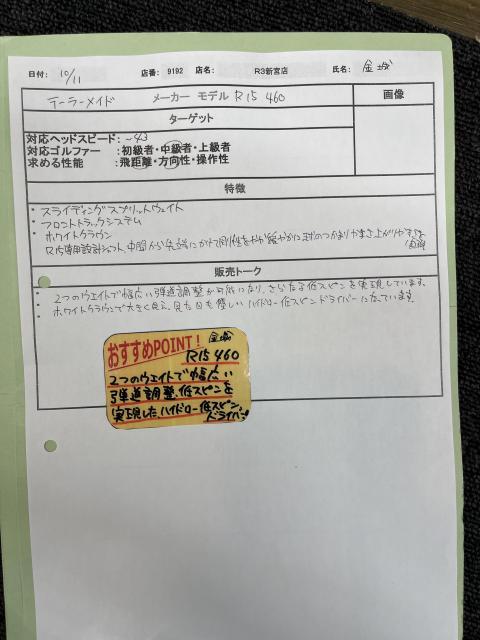 日付： 10/11 店番： 9192 店名： R3新宮店 氏名： 金城
テーラーメイド メーカー モデル R15 460 画像
ターゲット
対応ヘッドスピード： ～43
対応ゴルファー ：初級者・中級者・上級者
求める性能 ：飛距離・方向性・操作性
特徴
・スライディングスプリットウェイト
・フロントトラックシステム
・ホワイトクラウン
R15専用設計シャフト、中間から先端にかけて剛性をやや緩やかに 球のつかまりやすさ上がりやすさを
実現
販売トーク
・2つのウェイトで幅広い弾道調整が可能になり、さらなる低スピンを実現しています。
・ホワイトクラウンで大きく見え、見た目も優しいハイドロー低スピンドライバーになっています。
おすすめPOINT！ 金城
R15 460
2つのウェイトで幅広い
弾道調整、低スピンを
実現した、ハイドロー低スピン
ドライバー